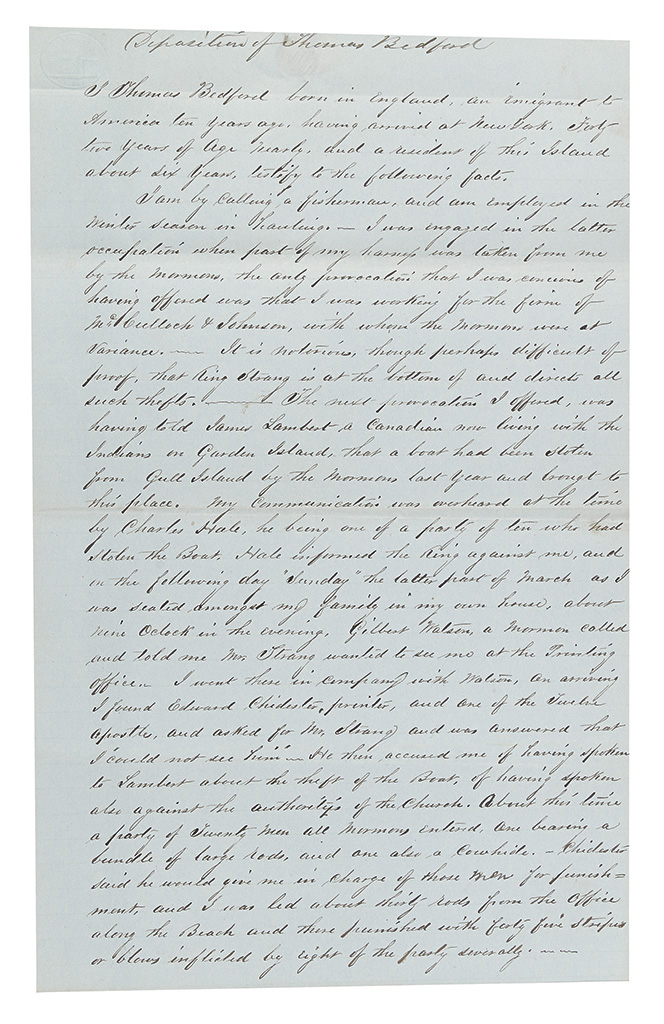 Deposition of Thomas Bedford
I Thomas Bedford born in England, an emigrant to
America ten years ago, having arrived at New York. Forty
two years of age nearly, and a resident of this Island
about six years, testify to the following facts.
I am by calling a fisherman, and am employed in the
Winter season in hauling. — I was engaged in the latter
occupation when part of my harness was taken from me
by the Mormons, the only provocation that I was concious of
having offered was that I was working for the firm of
McCulloch & Johnson, with whom the Mormons were at
variance. — It is notorious, though perhaps difficult of
proof, that King Strang is at the bottom of and directs all
such thefts. — The next provocation I offered, was
having told James Lambert, a Canadian now living with the
Indians on Garden Island, that a boat had been stolen
from Gull Island by the Mormons last year and brougt to
this place. My communication was overheard at the time
by Charles Hale, he being one of a party of ten who had
stolen the Boat. Hale informed the King against me, and
on the following day "Sunday" the latter part of March as I
was seated amongst my family in my own house, about
Nine Oclock in the evening, Gilbert Watson, a Mormon called
and told me Mr. Strang wanted to see me at the Printing
office. — I went there in company with Watson, on arriving
I found Edward Chidester, printer, and one of the Twelve
apostles, and asked for Mr. Strang and was answered that
I could not see him — He then accused me of having spoken
to Lambert about the theft of the Boat, of having spoken
also against the authoritys of the Church. About this time
a party of Twenty Men all Mormons entered, one bearing a
bundle of large rods, and one also a Cowhide. — Chidester
said he would give me in charge of those men for punish=
ment, and I was led about thirty rods from the Office
along the Beach and there punished with Forty five stripes
or blows inflicted by eight of the party severally. —